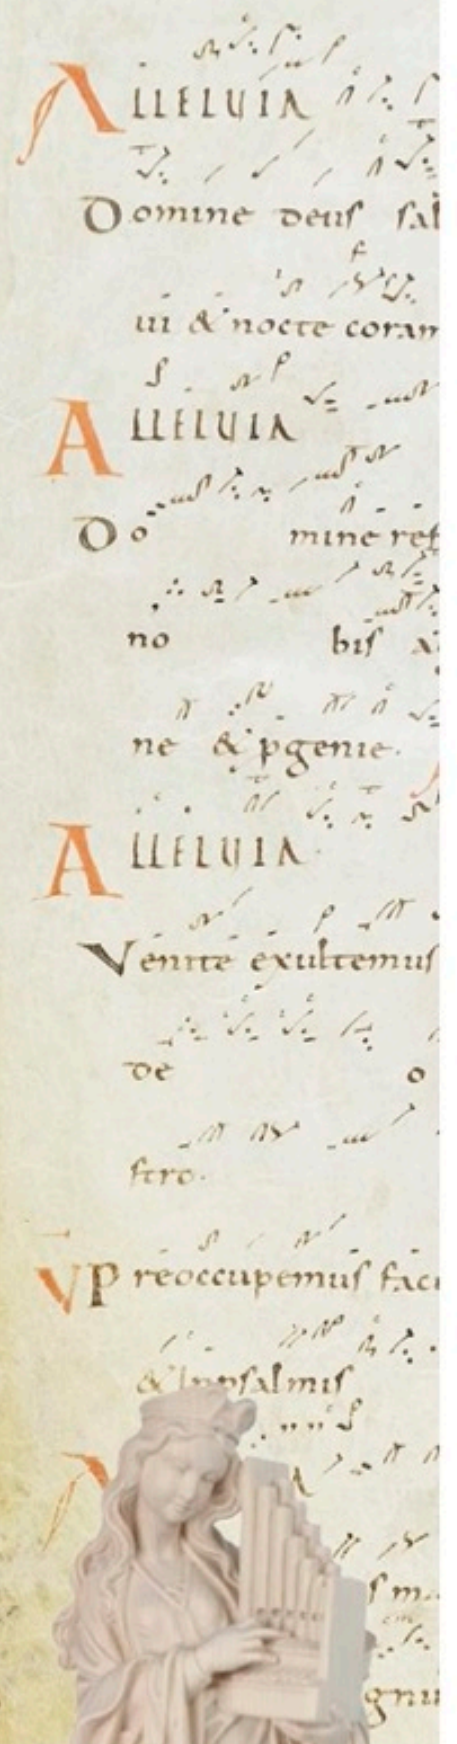 ALLELUIA
Domine deus sal
ui & nocte coram
ALLELUIA
Do mine ref
no bis
ne & pgenie.
ALLELUIA
Venite exultemus
de o
stro.
V Preoccupemus faci
& psalmis
A
s m
gnu